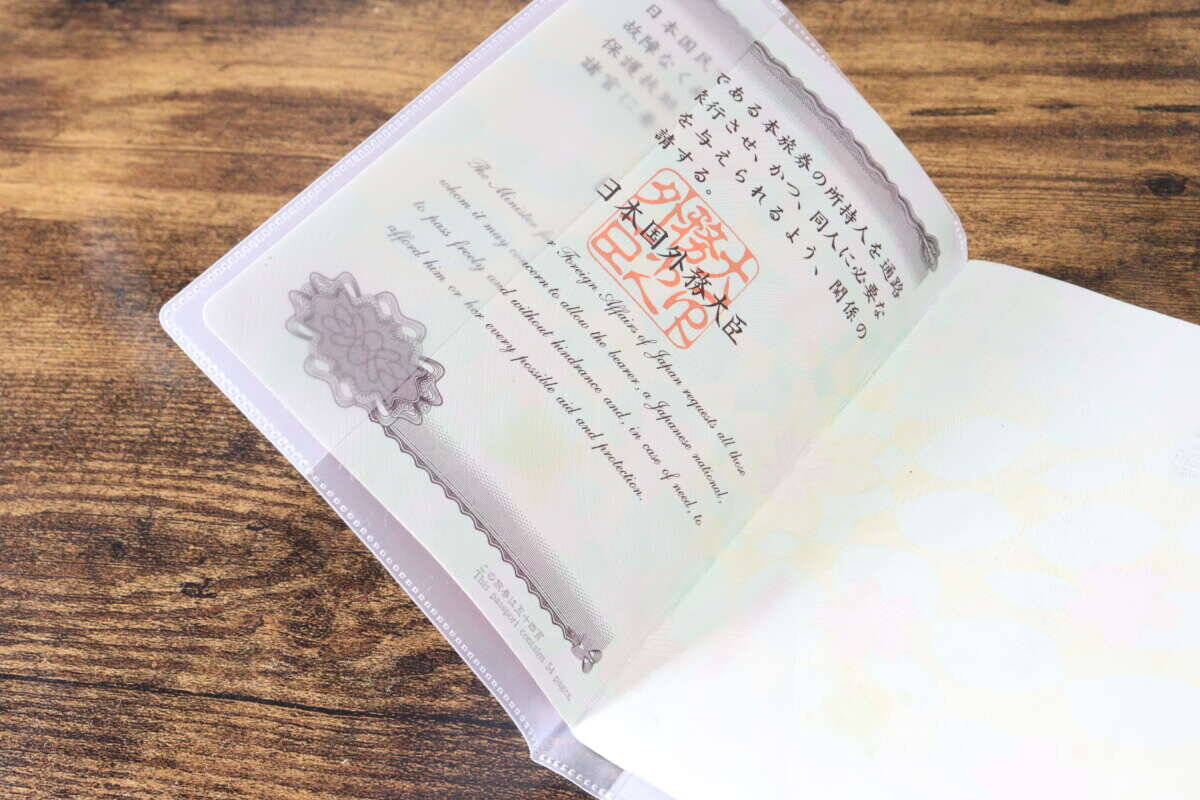 日本国民である本旅券の所持人を通路
故障なく旅行させ、かつ、同人に必要な
保護扶助を与えられるよう、関係の
諸官に要請する。
日本国外務大臣
The Minister for Foreign Affairs of Japan requests all those
whom it may concern to allow the bearer, a Japanese national,
to pass freely and without hindrance and, in case of need, to
afford him or her every possible aid and protection.
この旅券は五十四頁
This passport contains 54 pages.